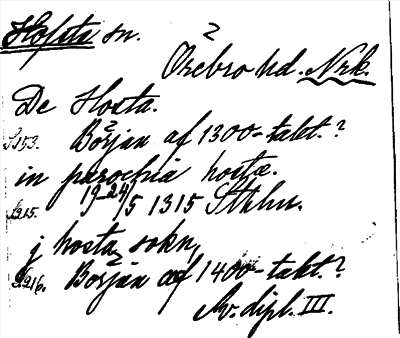 Hofsta sn.
Örebro hd. Nrk.
De Hosta.
S. 153. Början af 1300-talet. ?
in parochia hostæ.
S. 215. 19-24/5 1315 Sthlm.
j hosta sokn,
S. 216. Början af 1400-talet. ?
Sv. dipl. III.